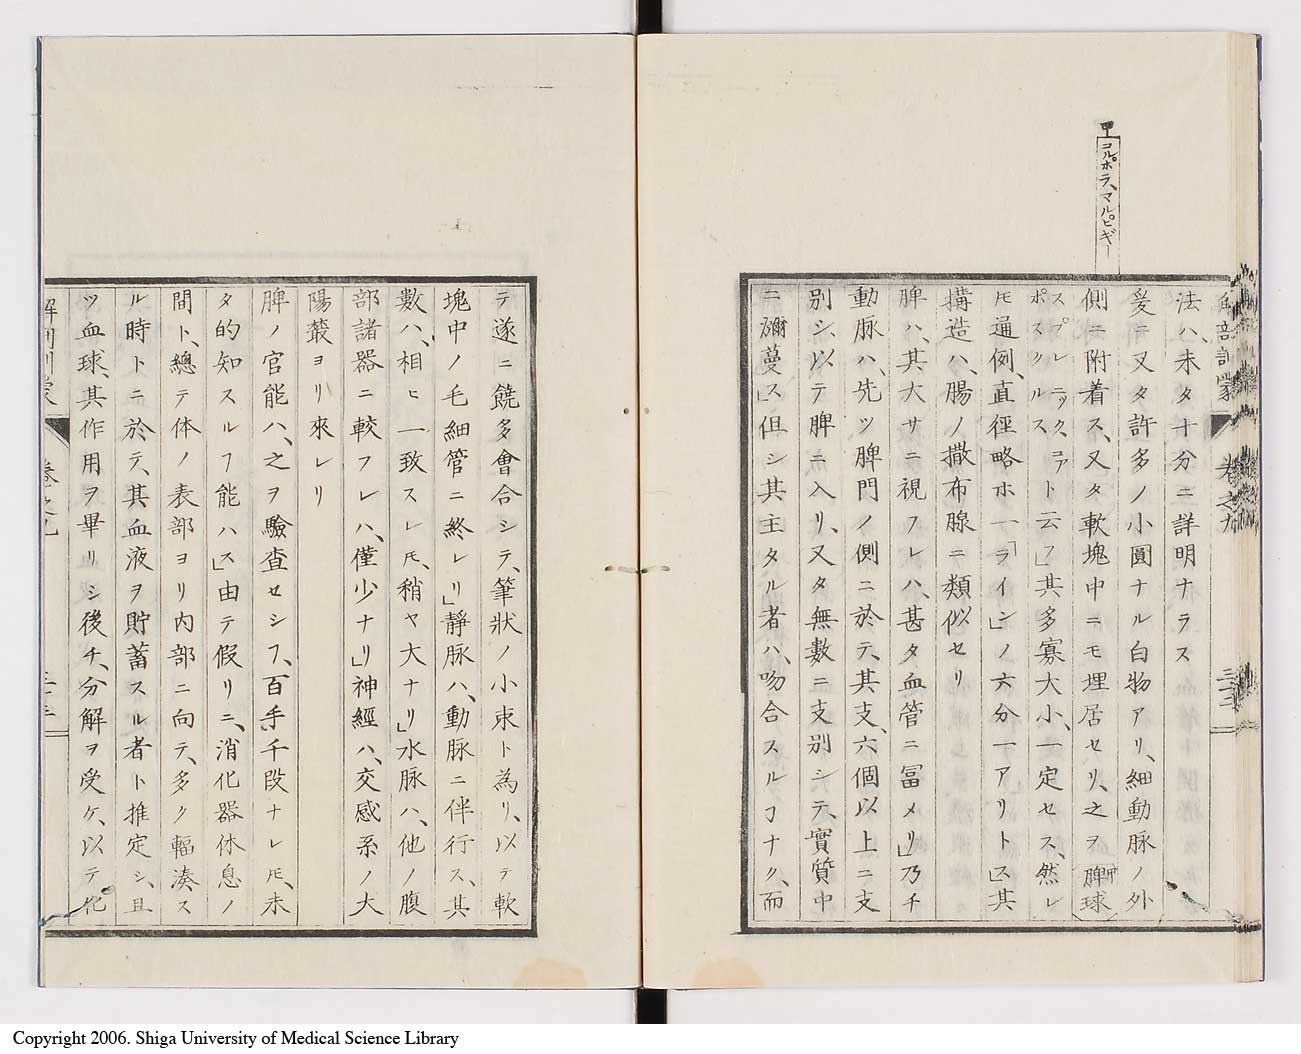 甲
コルポラ、マルピギー
解剖訓蒙
卷之九
法ハ、未タ十分ニ詳明ナラス
爰ニ又タ許多ノ小圓ナル白物アリ、細動脈ノ外
側ニ附着ス、又タ軟塊中ニモ埋居セリ、之ヲ甲脾球
スプレニック、コアポスクルスト云フ」其多寡大小、一定セス、然レ
𪜈通例、直徑略ホ一「ライン」ノ六分一アリトス」其
搆造ハ、腸ノ撒布腺ニ類似セリ
脾ハ、其大サニ視フレハ、甚タ血管ニ冨メリ」乃チ
動脈ハ、先ツ脾門ノ側ニ於テ、其支、六個以上ニ支
別シ、以テ脾ニ入リ、又タ無數ニ支別シテ、實質中
ニ彌蔓ス」但シ其主タル者ハ、吻合スルヿナク、而
テ遂ニ饒多會合シテ、筆狀ノ小束ト為リ、以テ軟
塊中ノ毛細管ニ終レリ」靜脈ハ、動脈ニ伴行ス、其
數ハ、相ヒ一致スレ𪜈、稍ヤ大ナリ」水脈ハ、他ノ腹
部諸器ニ較フレハ、僅少ナリ」神經ハ、交感系ノ大
陽叢ヨリ來レリ
脾ノ官能ハ、之ヲ驗査セシフ、百手千段ナレ𪜈、未
タ的知スルフ能ハス」由テ假リニ、消化器休息ノ
間ト、總テ体ノ表部ヨリ内部ニ向テ、多ク輻湊ス
ル時トニ於テ、其血液ヲ貯蓄スル者ト推定シ、且
ツ血球、其作用ヲ畢リシ後チ、分解ヲ受ケ、以テ化
卷之九
Copyright 2006. Shiga University of Medical Science Library